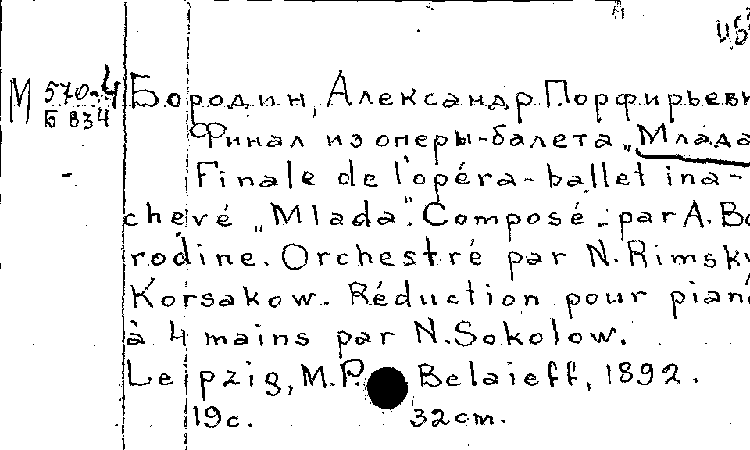 М 570-4
Б 834
Бородин, Александр Порфирьеви
Финал из оперы-балета „Млада
Finale de l'opéra-ballet ina-
chevé „Mlada". Composé par A. Bo
rodine. Orchestré par N. Rimsky
Korsakow. Réduction pour piano
à 4 mains par N. Sokolow.
Leipzig, M.P. Belaieff, 1892.
19 c. 32 cm.